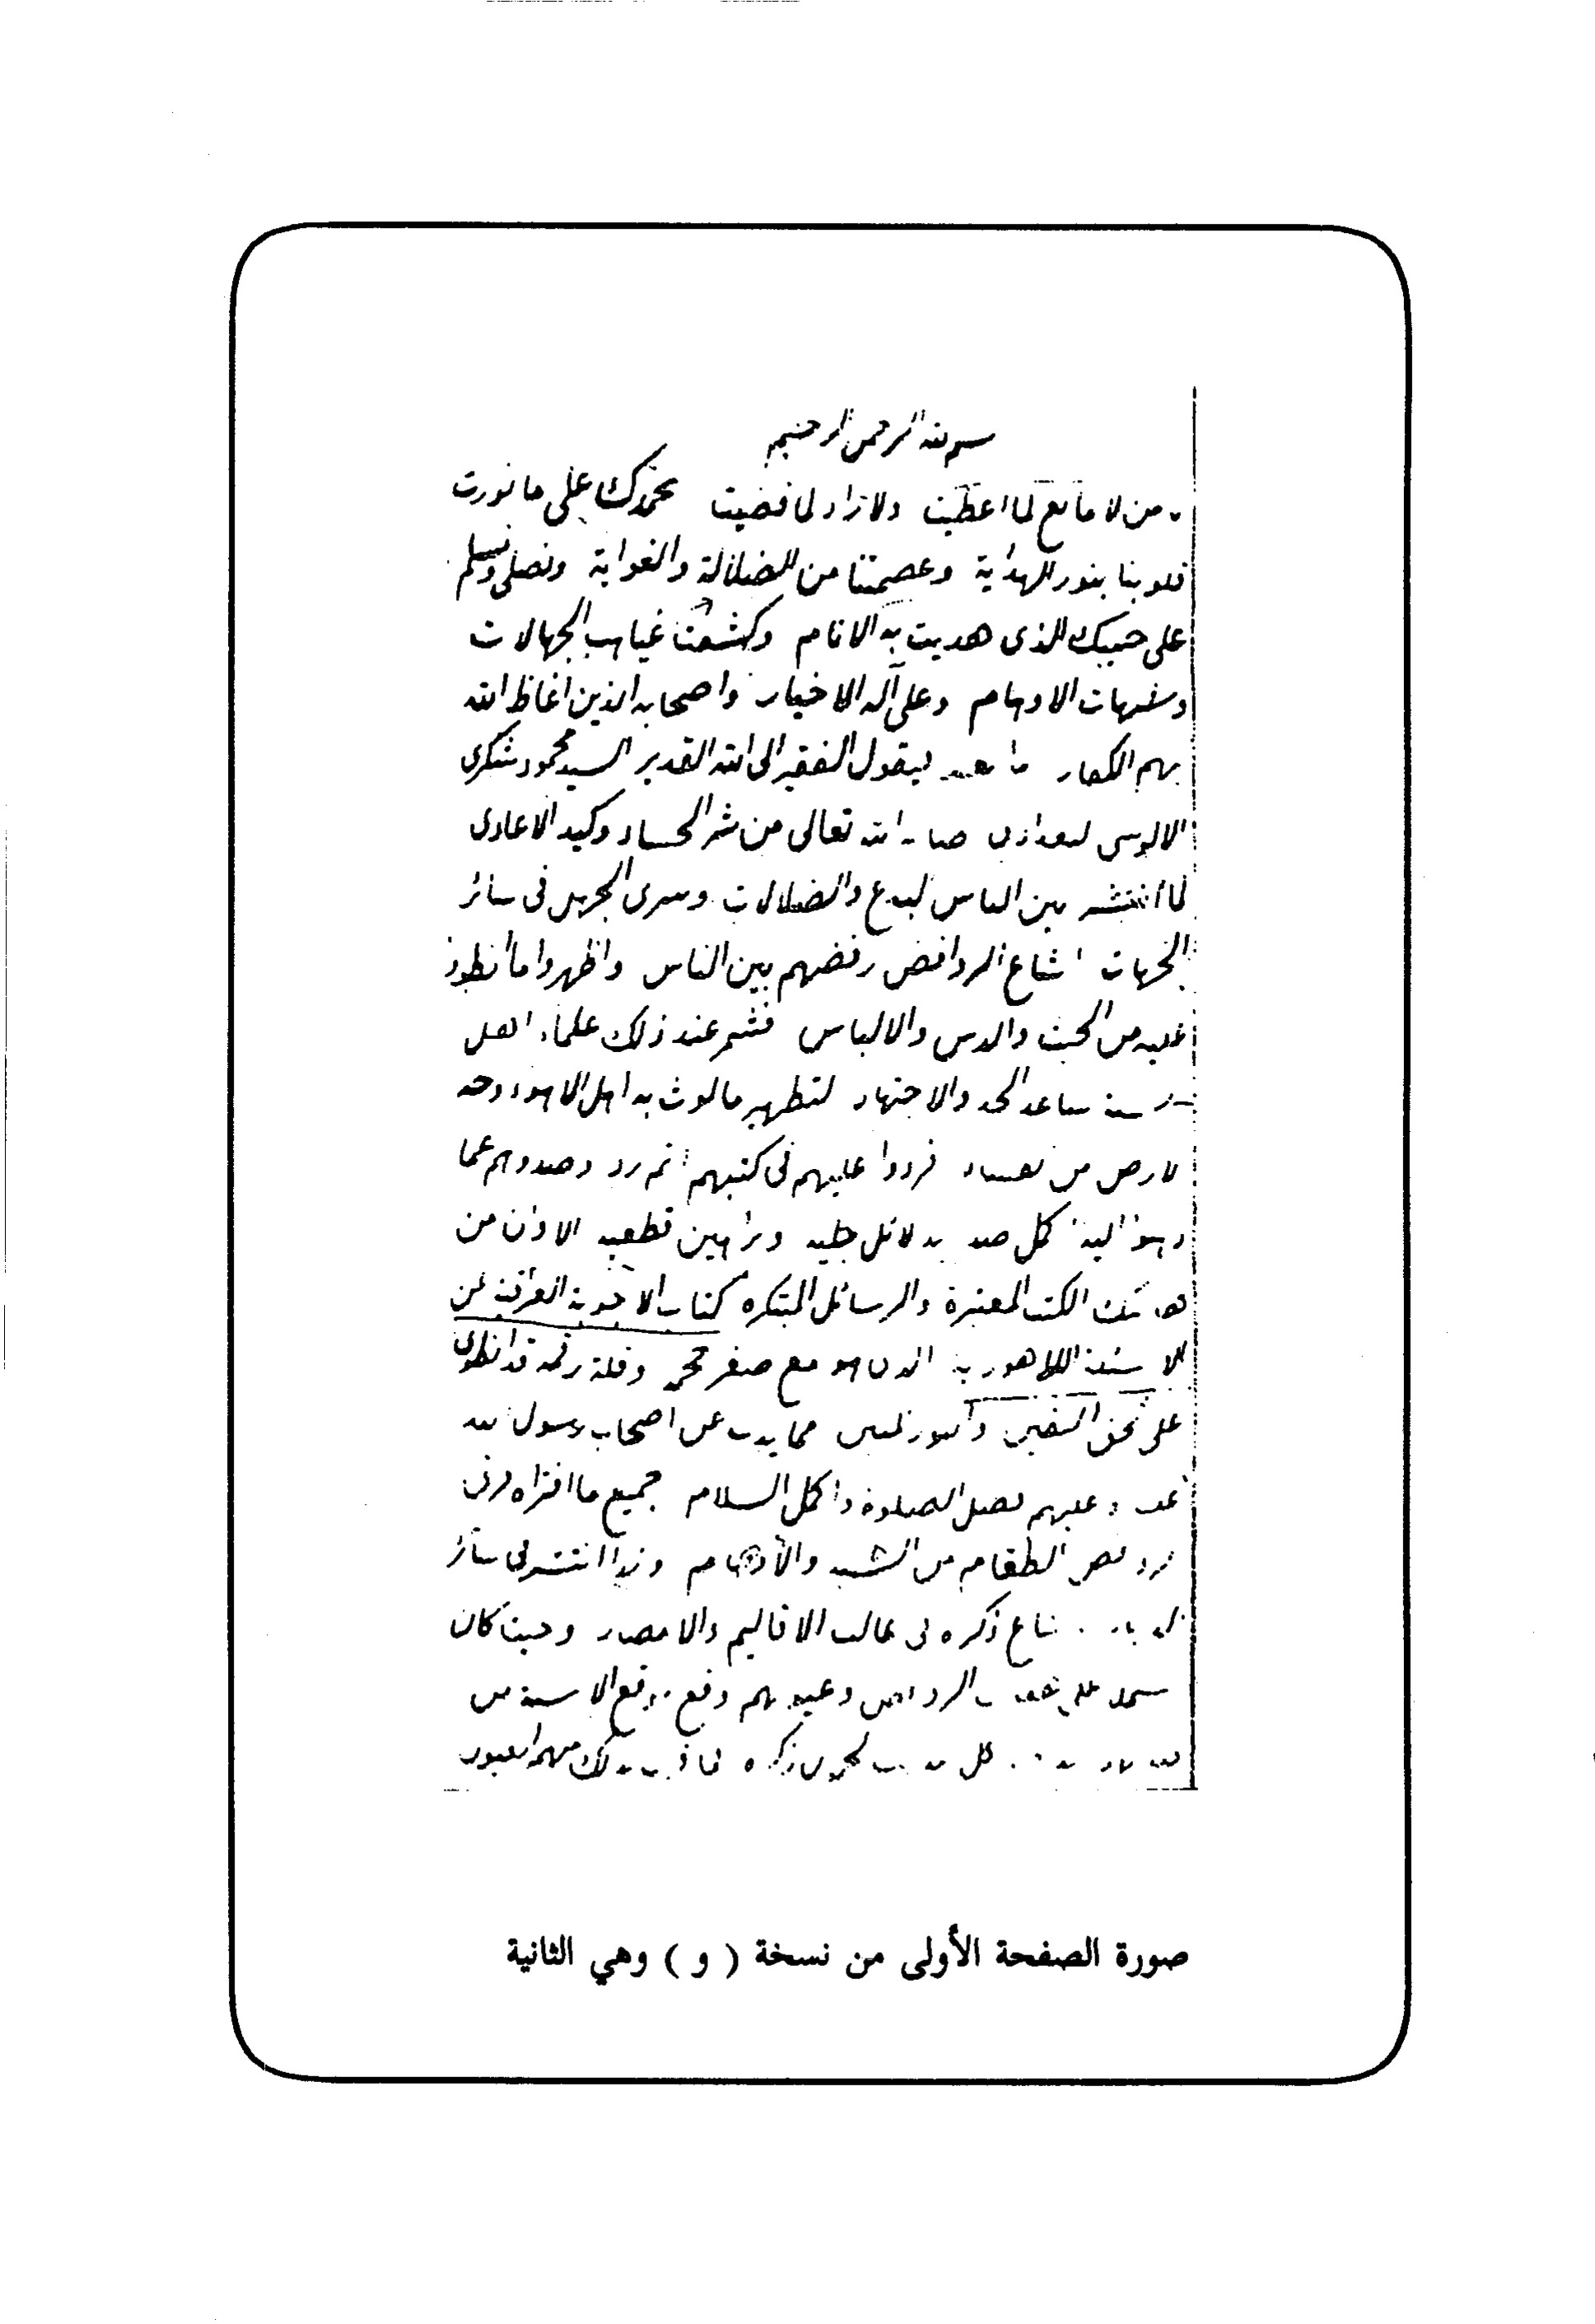 بسم الله الرحمن الرحيم
من لا مانع لما اعطيت ولا راد لما قضيت نحمدك على ما نورت
قلوبنا بنور الهداية وعصمتنا من الضلالة والغواية ونصلي ونسلم
على حبيبك الذى هديت به الانام وكشفت غياهب الجهالات
وشبهات الاوهام وعلى آله الاخيار واصحابه الذين اغاظ الله
بهم الكفار اما بعد فيقول الفقير الى الله القدير السيد محمود شكرى
الالوسى البغدادى صانه الله تعالى من شر الحساد وكيد الاعادى
لما انتشر بين الناس البدع والضلالات وسرى الجهل فى سائر
الجهات اشاع الروافض رفضهم بين الناس واظهروا ما انطووا
عليه من الخبث والدس والالباس فشمر عند ذلك علماء اهل
ساعد الجد والاجتهاد لتطهير ما لوث به اهل الاهواء وجه
الارض من الفساد فردوا عليهم فى كتبهم اتم رد وصدوهم عما
كل صد بدلائل جلية وبراهين قطعية الا وان من
تلك الكتب المعتبرة والرسائل المبتكره كتاب الاجوبة العراقية عن
الاسئلة اللاهورية الذى هو مع صغر حجمه وقلة رقمه قد انطوى
على مما يذب عن اصحاب رسول الله
وعليهم افضل الصلوة واكمل السلام جميع ما افتراه
الطغام من الشبه والأوهام ولذا انتشر فى سائر
شاع ذكره فى غالب الاقاليم والامصار وحيث كان
الروافض وعليهم وقع الاسنة من
كل
صورة الصفحة الأولى من نسخة ( و ) وهي الثانية